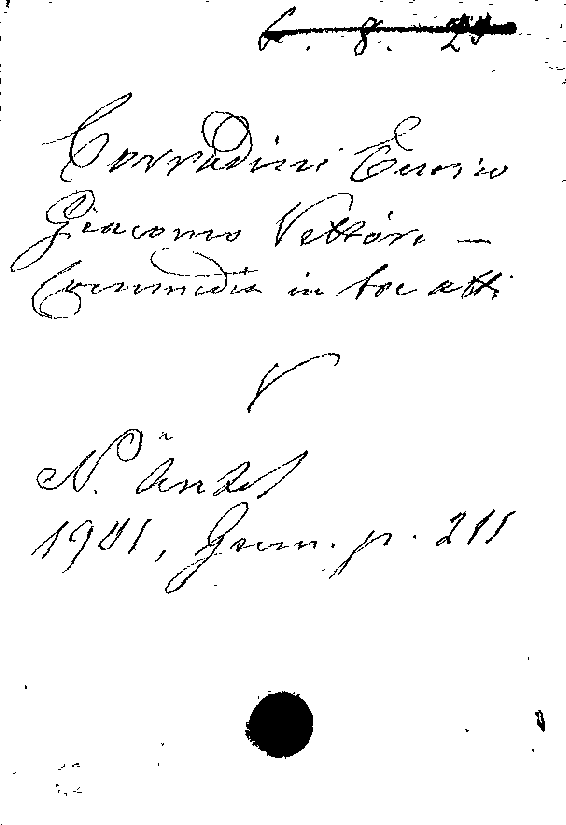 6. 8. 21
Corradini Enrico
Giacomo Vettóri —
Commedia in tre atti
V
N. Ant.
1901, Genn. p. 211